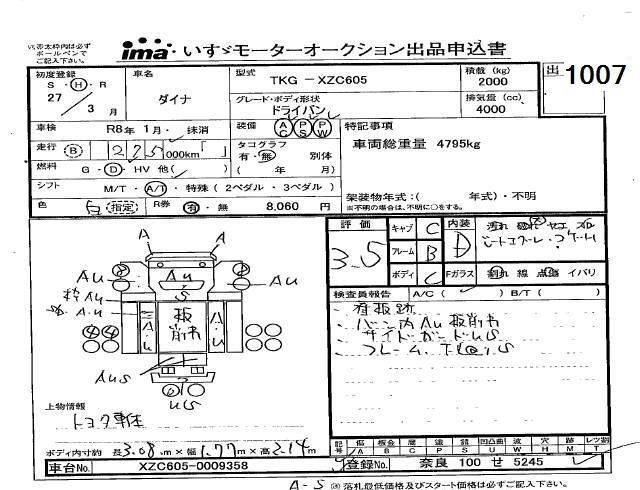 い、赤太枠内は必ず
ボールペンで
ご記入下さい。
ima いすゞモーターオークション出品申込書
出 1007
初度登録 S・H・R 27/3月
車名 ダイナ
型式 TKG-XZC605
積載 (kg) 2000
グレード・ボディ形状 ドライバン
排気量 (cc) 4000
車検 R8年 1月 抹消
装備 AC PS PW
特記事項
車両総重量 4795kg
走行 B 275,000km
タコグラフ 有・無 別体
( 年 月)
燃料 G・D・HV 他( )
シフト M/T・A/T・特殊(2ペダル・3ペダル)
架装物年式:( 年式)・不明
※不明の場合は、不明に○をする。
色 白 指定 R券 有・無 8,060 円
評価 3.5
キャブ C
フレーム B
ボディ C
内装 D
Fガラス 割れ 線 点傷 イバリ
検査員報告 A/C( ) B/T( )
看板跡
バン内Au板削有
サイドガードUS
フレーム、下回りS
A A
Au Au
Au
S
枠Au
A・u
板削有
AuS
US
上物情報
トヨタ車体
ボディ内寸約 長3.08m×幅1.77m×高2.14m
記号 傷 板金 腐 塗 錆 凹凸曲 波 穴 跡 レツ割
A B C P S U W H M T
車台No. XZC605-0009358
登録No. 奈良 100 せ 5245
A-S
落札最低価格及びスタート価格は必ずご記入下さい。